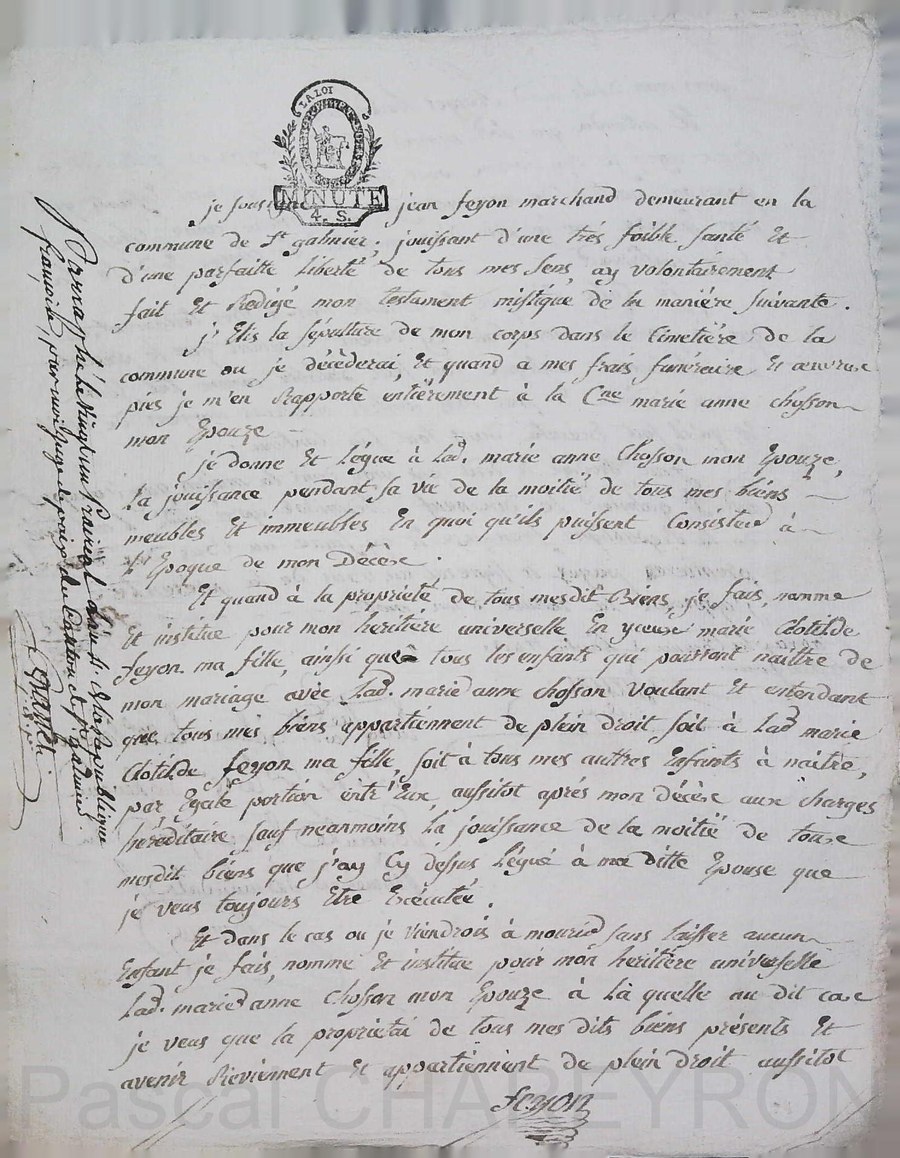 LA LOI
MINUTE
4. S.
je sous jean feyon marchand demeurant en la
commune de St galmier, jouissant d'une très foible santé Et
d'une parfaitte Liberté de tous mes Sens, ay volontairement
fait Et Rédigé mon testament mistique de la manière Suivante.
j'Elis la sépulture de mon corps dans le Cimetière de la
commune ou je décèderai, Et quand a mes frais funéraire Et œuvres
pies je m'en Rapporte entièrement à la Cne marie anne Chosson
mon Epouze
je donne Et Légue à Lad. marie anne Chosson mon Epouze,
La jouissance pendant sa vie de la moitié de tous mes biens
meubles Et immeubles En quoi qu'ils puissent Consister à
L'Epoque de mon Décèse.
Et quand à la propriété de tous mesdit Biens, je fais, nomme
Et institue pour mon heritière universelle En yœuse marie Clotilde
feyon ma fille, ainsi que tous les enfants qui pourront naître de
mon mariage avec Lad. marie anne chosson voulant Et entendant
que tous mes biens appartiennent de plein droit soit à Lad. marie
Clotilde feyon ma fille, soit à tous mes auttres Enfants à naitre,
par Egale portion entr'Eux, aussitot après mon décèse aux charges
héréditaire sauf néanmoins la jouissance de la moitié de touse
mesdit biens que j'ay Cy dessus Légué à ma ditte Epouse que
je veus toujours Etre Exécutée.
Et dans le cas ou je Viendrois à mourir sans laisser aucun
Enfant je fais, nomme Et institue pour mon heritière universelle
Lad. marie anne Chosson mon Epouze à Là quelle au dit case
je veus que la propriétai de tous mes dits biens présents Et
avenir Reviennent Et appartiennent de plein droit aussitot
feyon
Parraphé le vingt un Prairial L'an Si. de la république
française, par moi juge de paix du Canton de St galmier.
Pascal CHAPEYRON